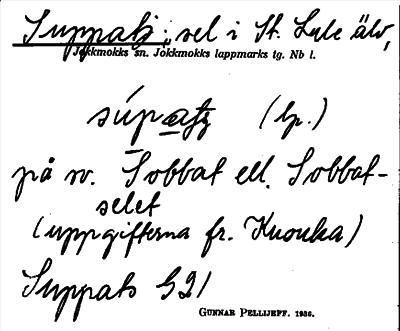 Suppatj; sel i St. Lule älv,
Jokkmokks sn. Jokkmokks lappmarks tg. Nb l.
súpatj (lp.)
på sv. Sobbat ell. Sobbat-
selet
(uppgifterna fr. Kuouka)
Suppats G 21
GUNNAR PELLIJEFF. 1936.